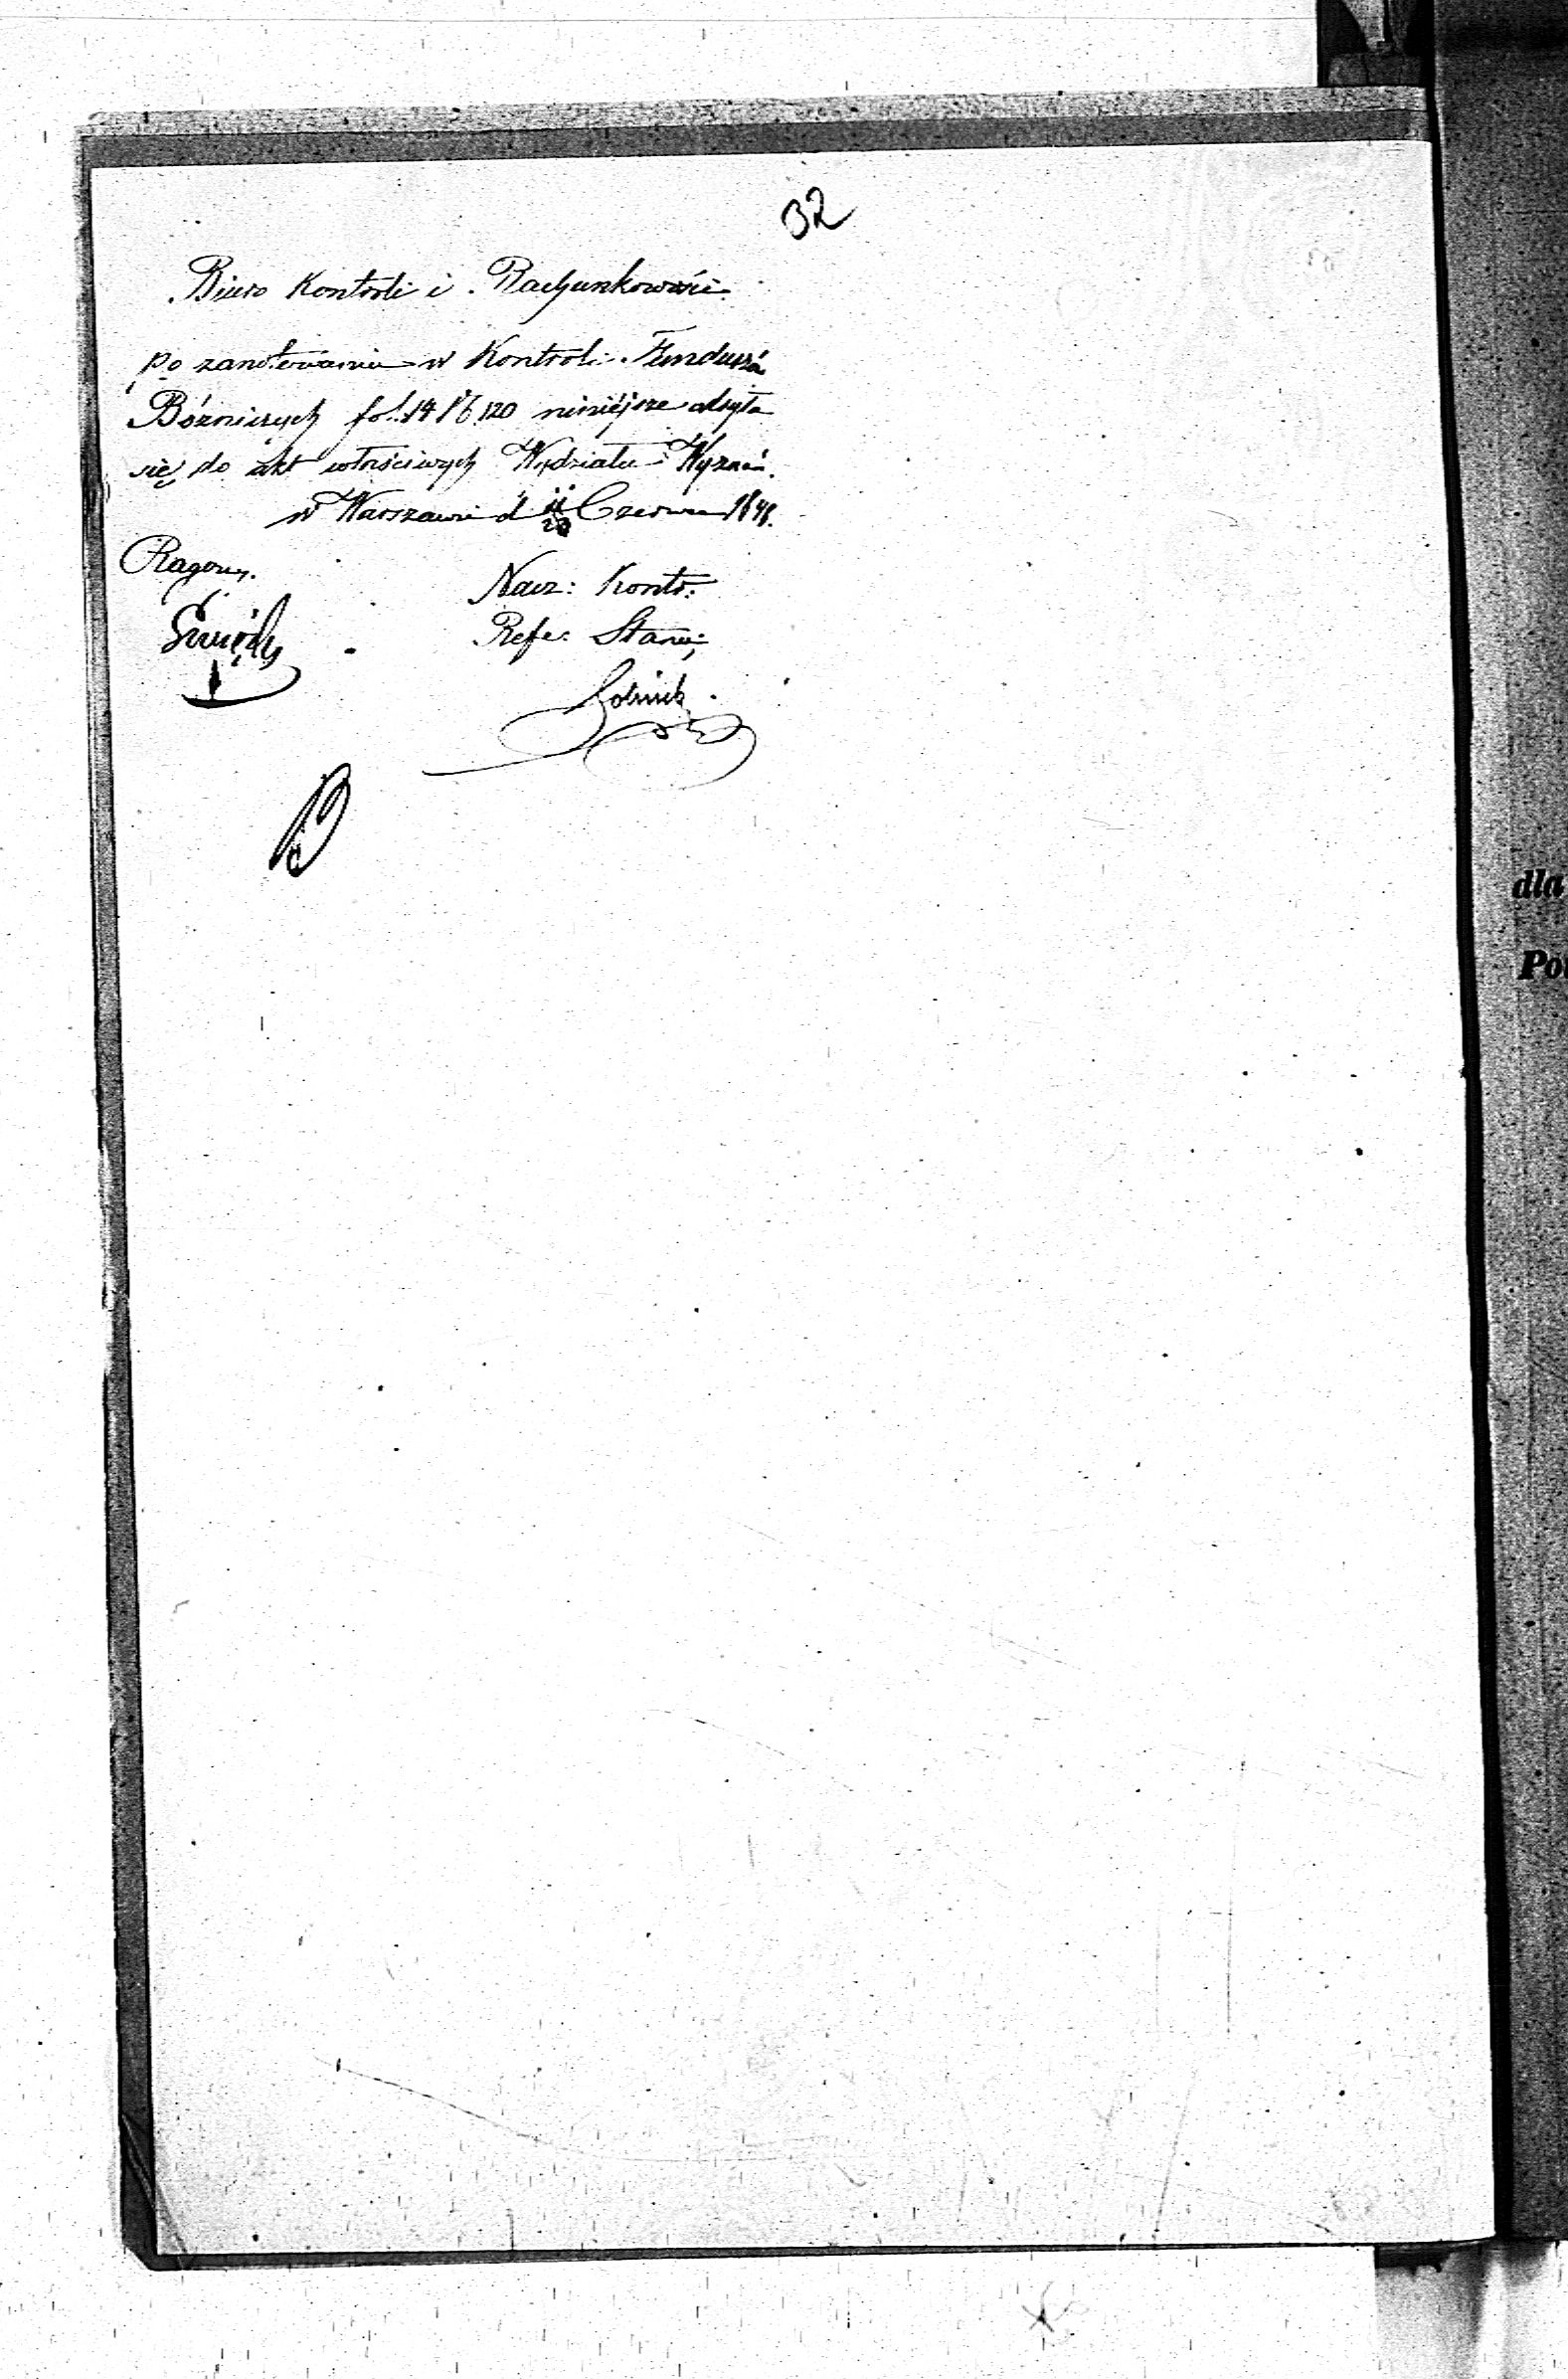 32
Biuro Kontroli i Rachunkowości
po zanotowaniu w Kontroli Fundusza
Bóżniczych fol. 14 120 niniejsze odsyła
się do akt właściwych Wydziału Wyznań.
w Warszawie d 11/23 Czerwca 1841.
Nacz: Kontr:
Refe: Stanu;
dla
Po